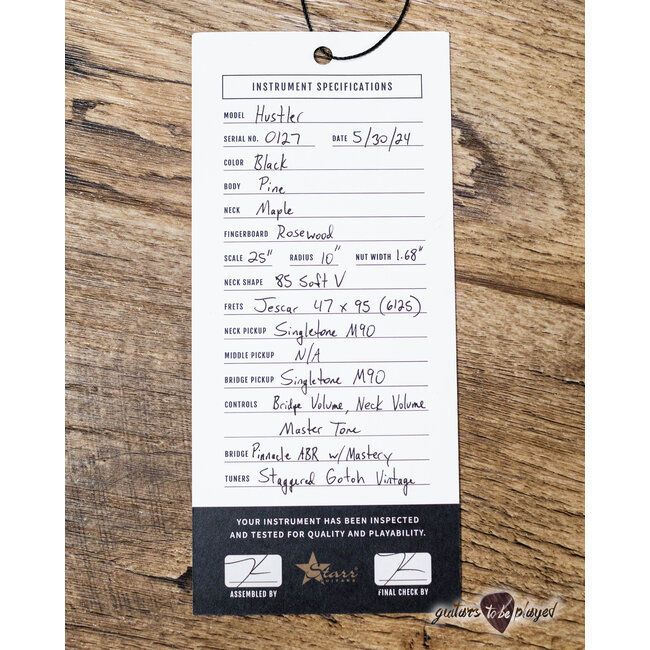 INSTRUMENT SPECIFICATIONS
MODEL Hustler
SERIAL NO. 0127 DATE 5/30/24
COLOR Black
BODY Pine
NECK Maple
FINGERBOARD Rosewood
SCALE 25" RADIUS 10" NUT WIDTH 1.68"
NECK SHAPE 85 Soft V
FRETS Jescar 47 x 95 (6125)
NECK PICKUP Singletone M90
MIDDLE PICKUP N/A
BRIDGE PICKUP Singletone M90
CONTROLS Bridge Volume, Neck Volume
Master Tone
BRIDGE Pinnacle ABR w/Mastery
TUNERS Staggered Gotoh Vintage
YOUR INSTRUMENT HAS BEEN INSPECTED
AND TESTED FOR QUALITY AND PLAYABILITY.
Starr
GUITARS
ASSEMBLED BY FINAL CHECK BY
guitars to be played